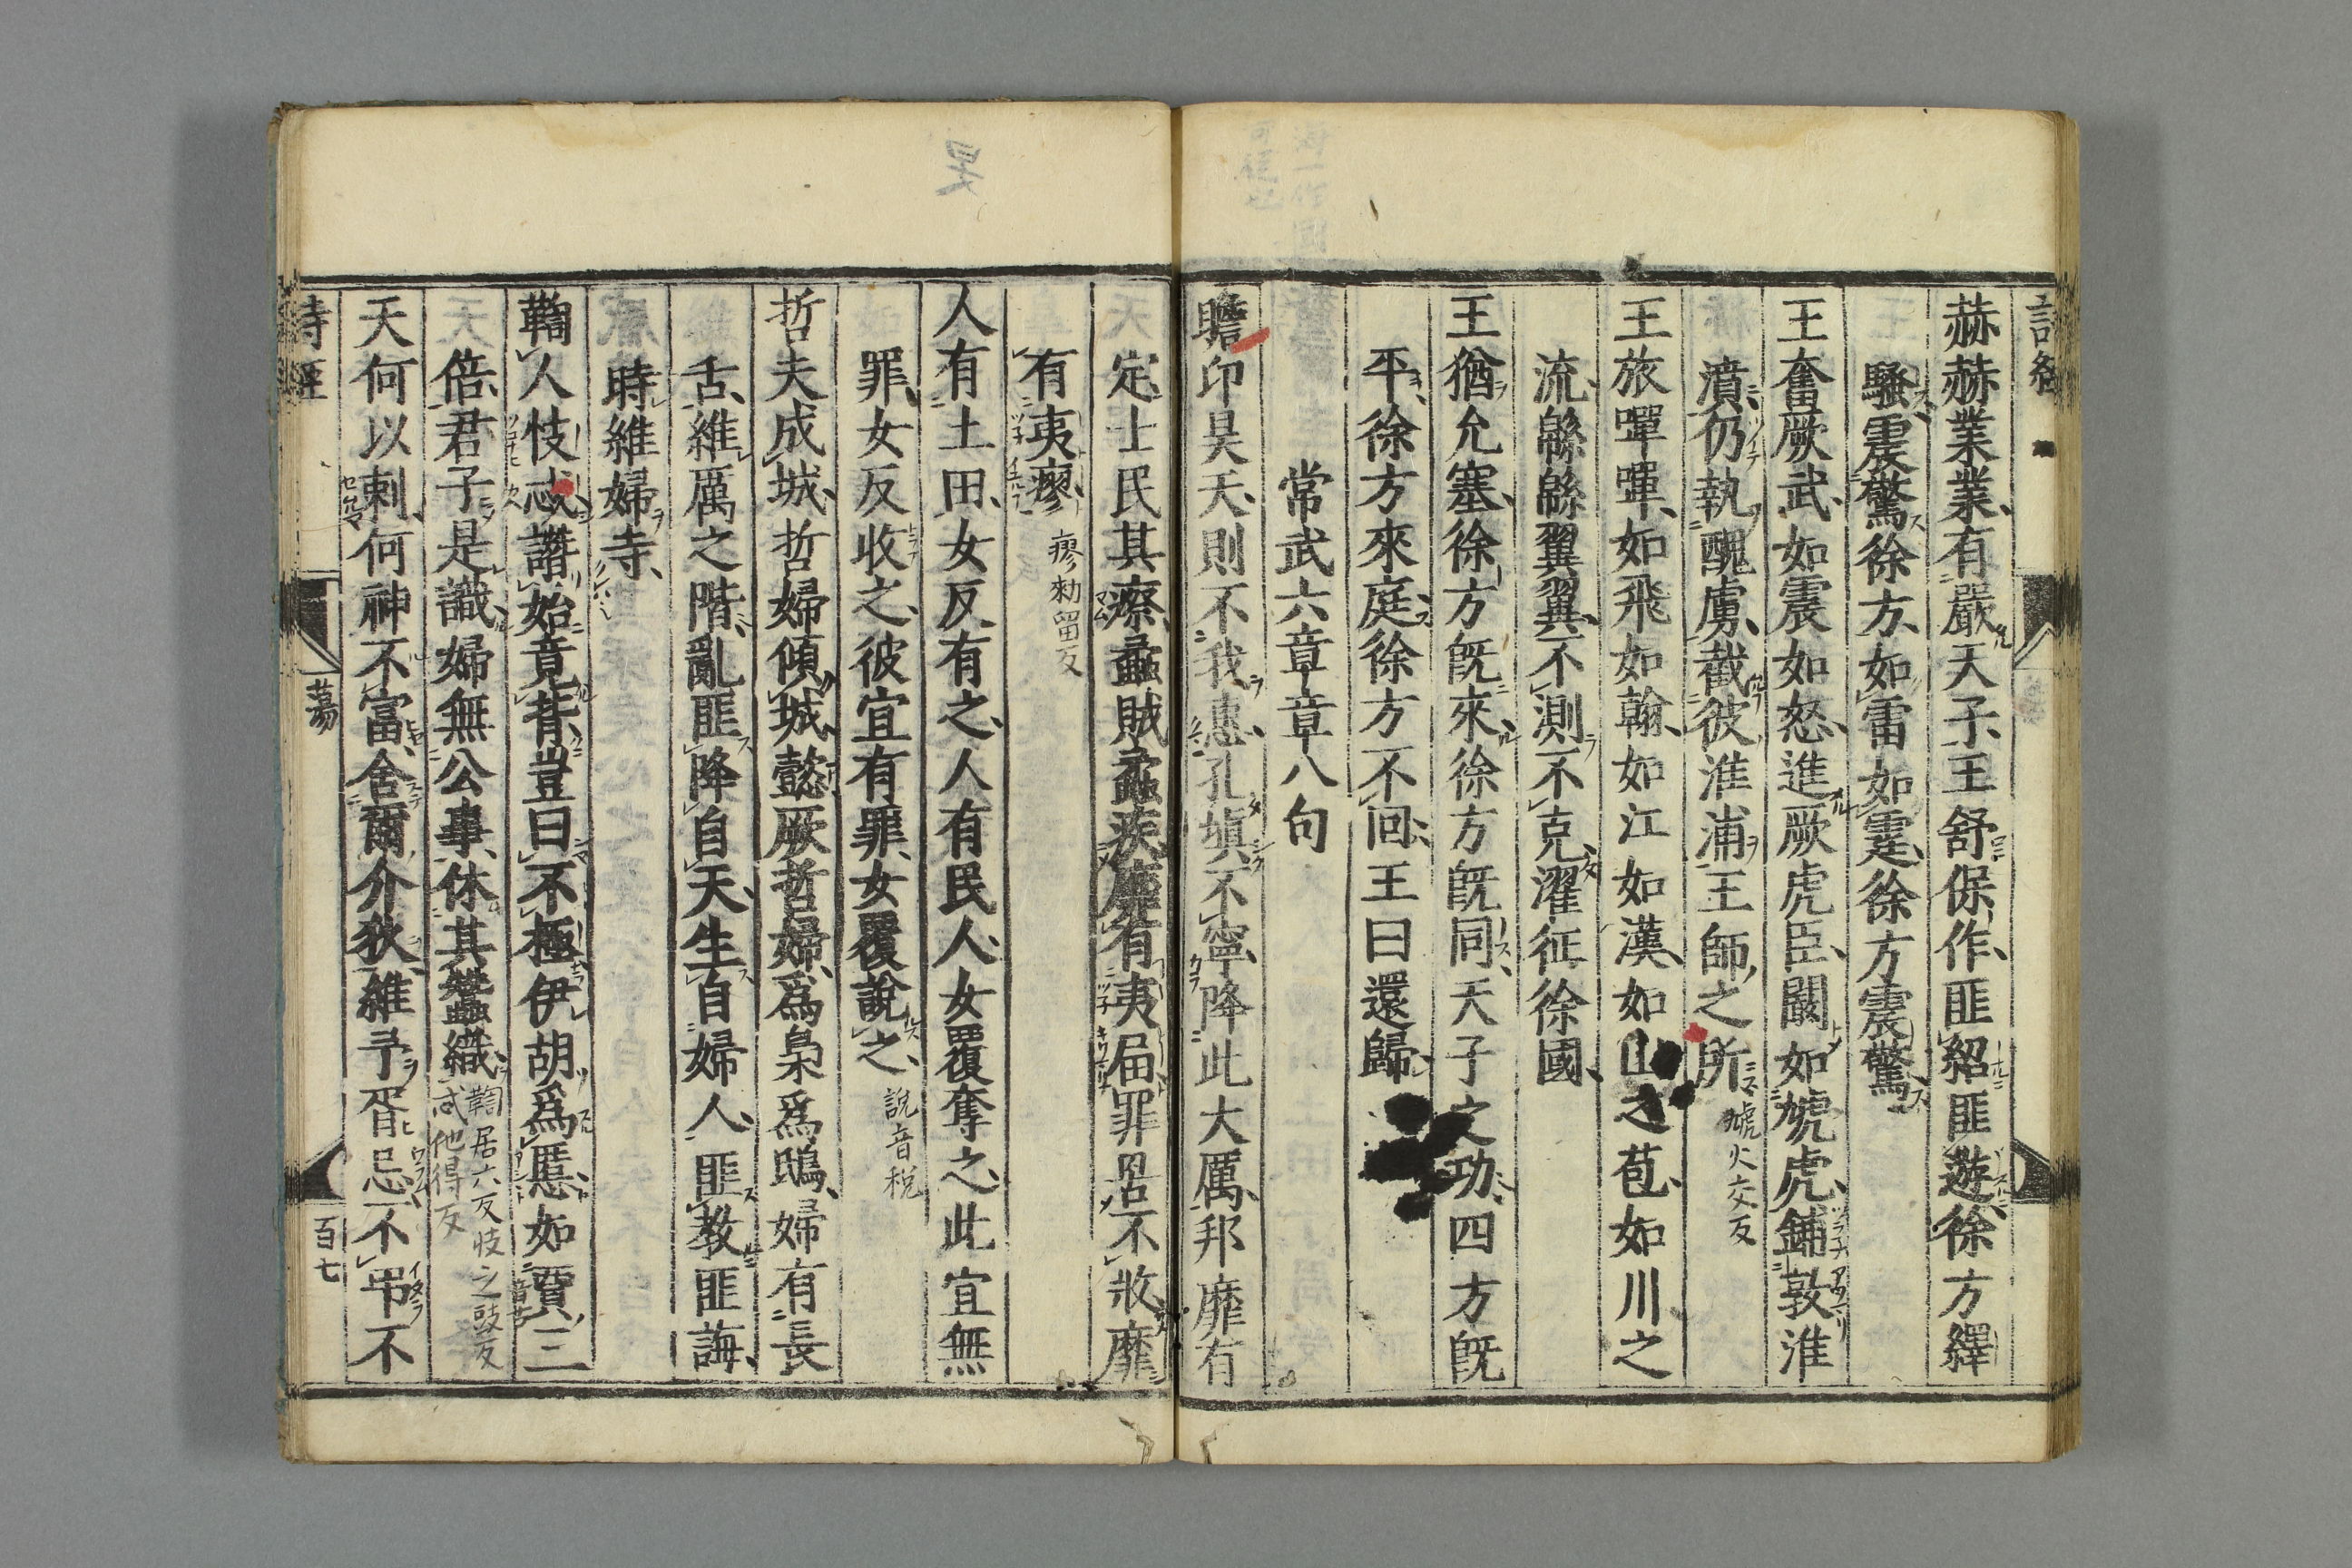 詩經
赫赫業業有嚴天子王舒保作匪紹匪遊徐方繹
騷震驚徐方如雷如霆徐方震驚
王奮厥武如震如怒進厥虎臣闞如虓虎鋪敦淮
濆仍執醜虜截彼淮浦王師之所 虓火交反
王旅嘽嘽如飛如翰如江如漢如山之苞如川之
流緜緜翼翼不測不克濯征徐國
王猶允塞徐方旣來徐方旣同天子之功四方旣
平徐方來庭徐方不回王曰還歸
常武六章章八句
瞻卬昊天則不我惠孔塡不寧降此大厲邦靡有
定士民其瘵蟊賊蟊疾靡有夷屆罪罟不收靡
有夷瘳 瘳勑留反
人有土田女反有之人有民人女覆奪之此宜無
罪女反收之彼宜有罪女覆說之 說音稅
哲夫成城哲婦傾城懿厥哲婦爲梟爲鴟婦有長
舌維厲之階亂匪降自天生自婦人匪教匪誨
時維婦寺
鞫人忮忒譖始竟背豈曰不極伊胡爲慝如賈三
倍君子是識婦無公事休其蠶織 鞫居六反忮之豉反
忒他得反
天何以刺何神不富舍爾介狄維予胥忌不弔不
詩經
蕩
百七
昊